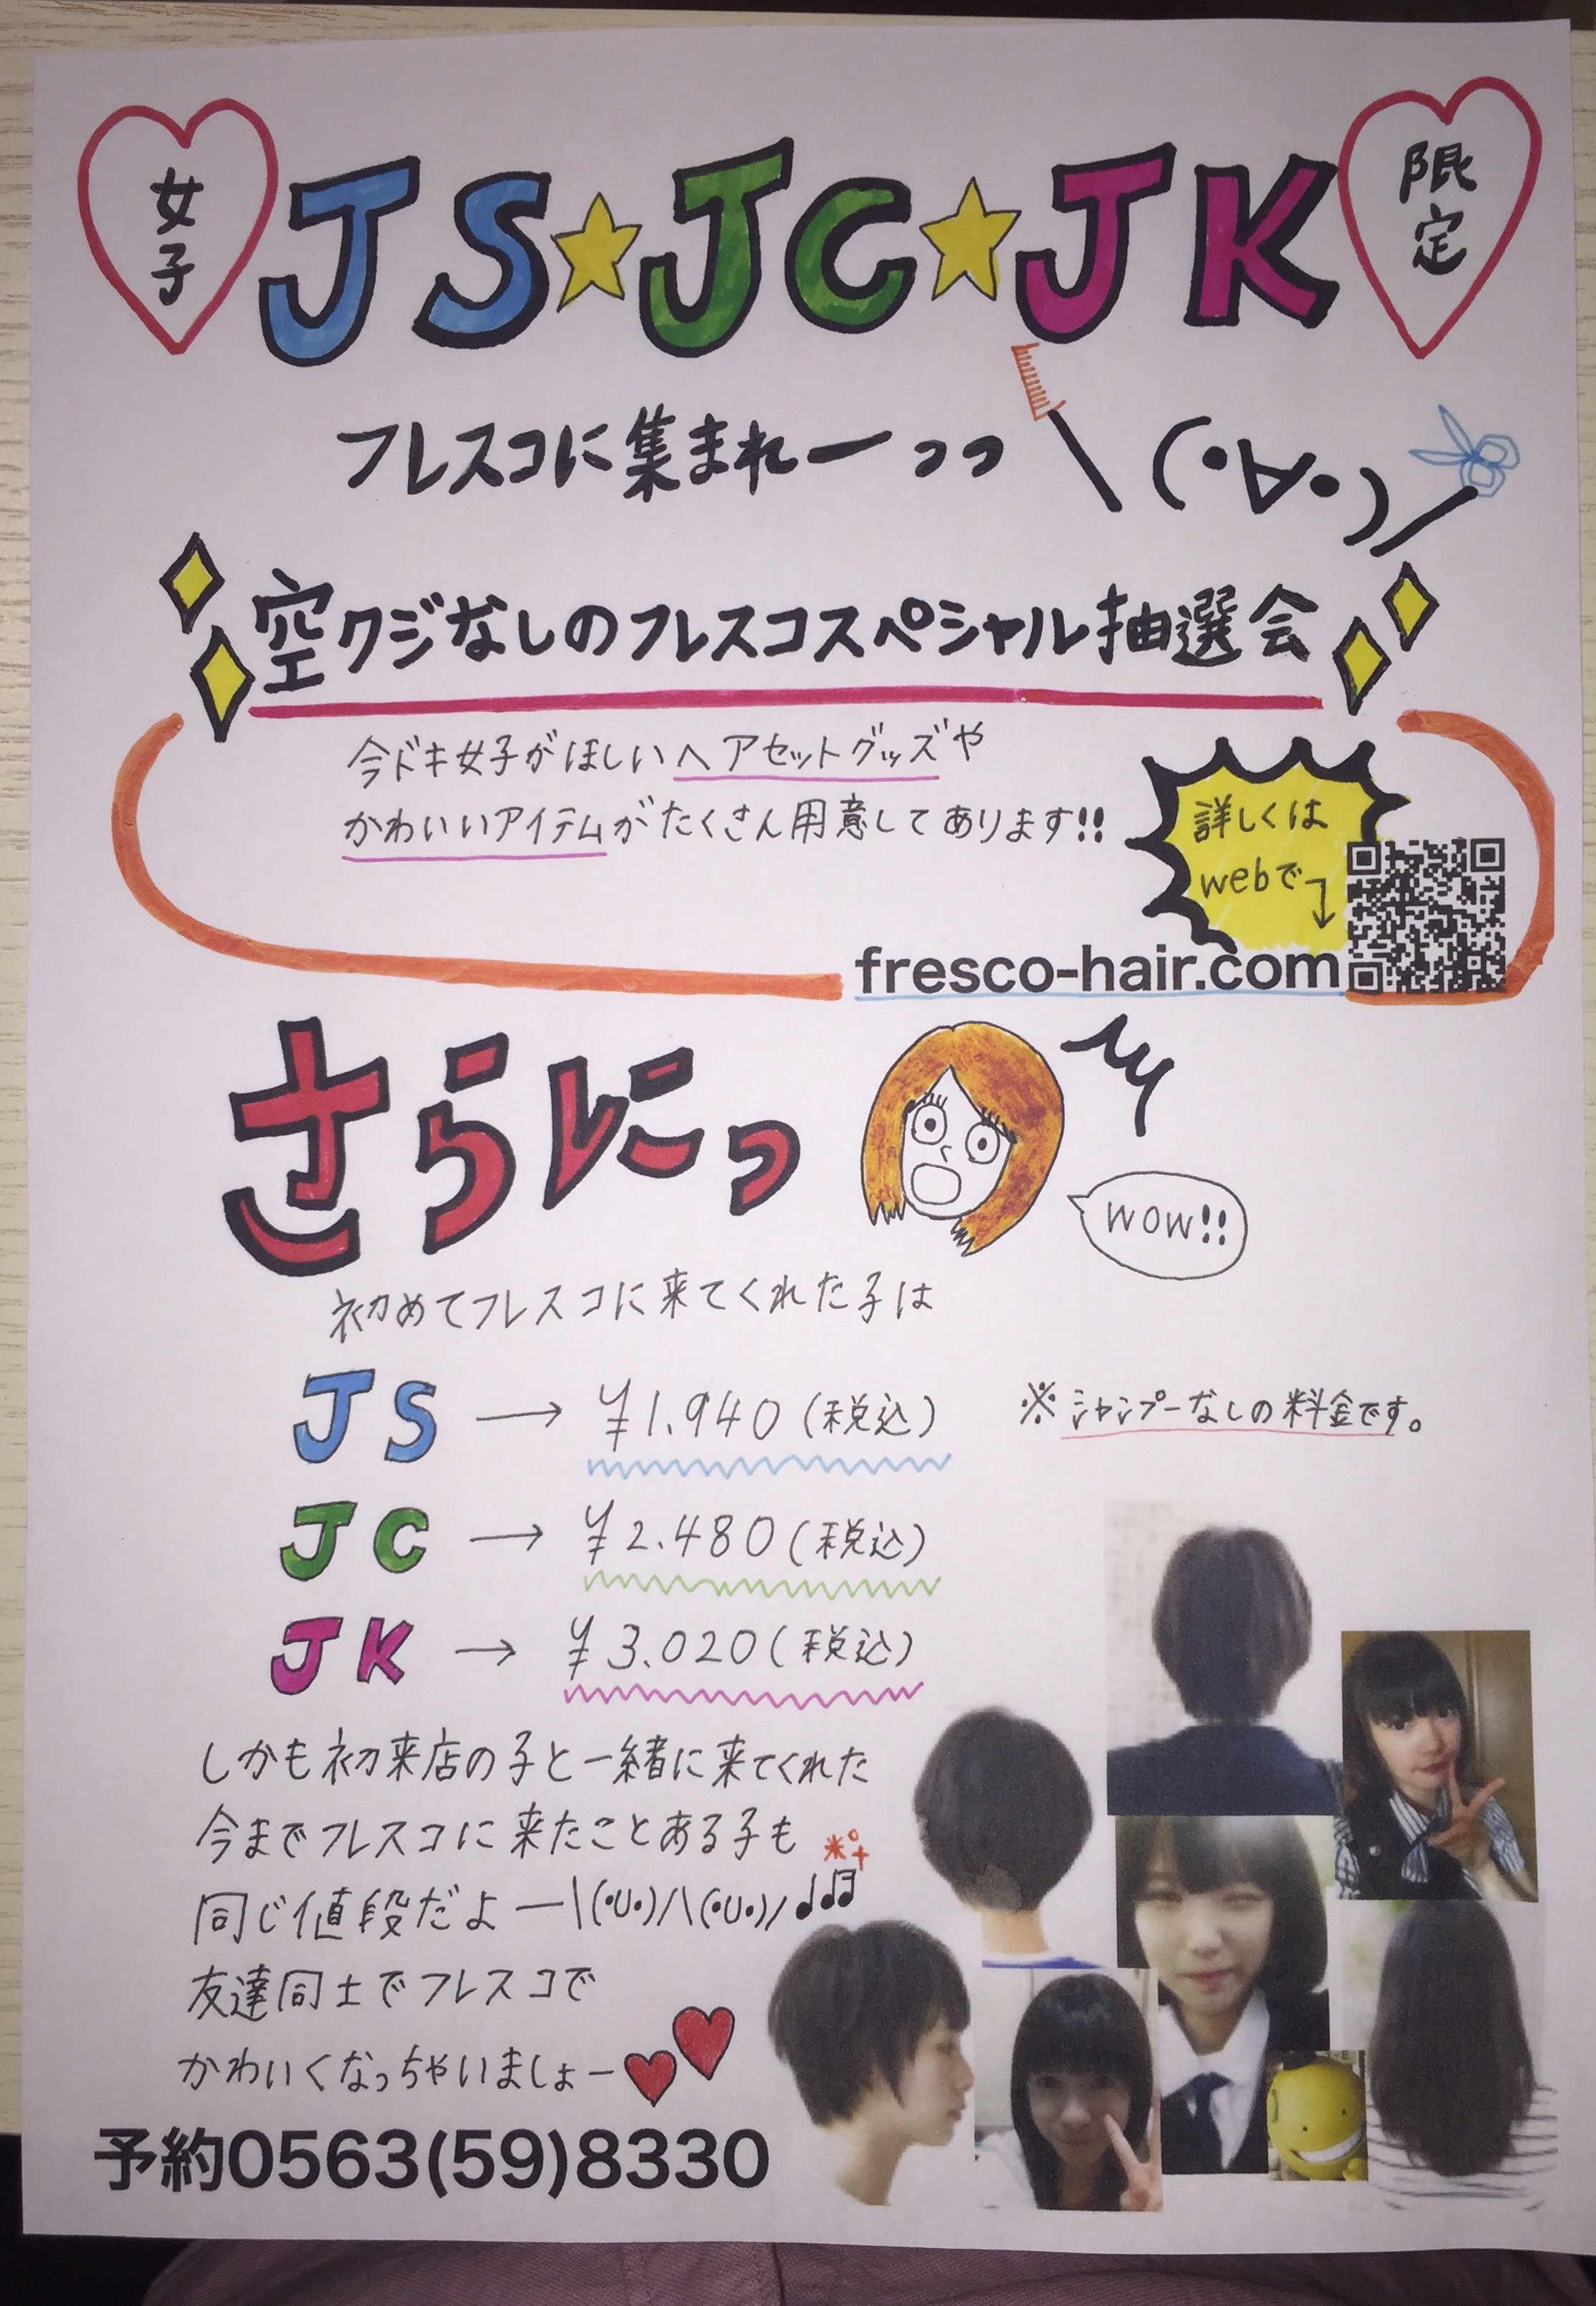 女子
JS★JC★JK
限定
フレスコに集まれーっっ \(・∀・)/
空クジなしのフレスコスペシャル抽選会
今ドキ女子がほしいヘアセットグッズや
かわいいアイテムがたくさん用意してあります!!
詳しくは
webで
fresco-hair.com
さらにっ
wow!!
初めてフレスコに来てくれた子は
JS → ¥1.940(税込) ※シャンプーなしの料金です。
JC → ¥2.480(税込)
JK → ¥3.020(税込)
しかも初来店の子と一緒に来てくれた
今までフレスコに来たことある子も
同じ値段だよー\(・∪・)/\(・∪・)/♩♫
友達同士でフレスコで
かわいくなっちゃいましょー
予約0563(59)8330